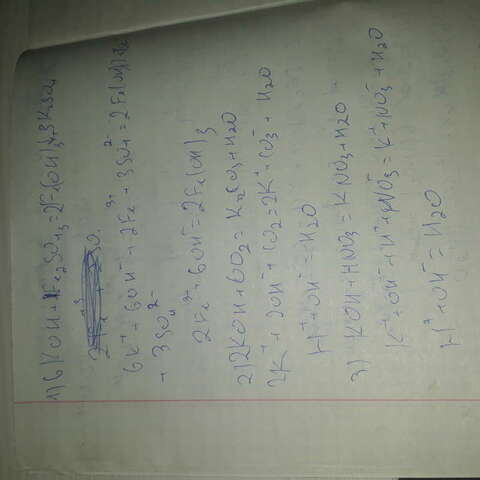 1) 6KOH + Fe2SO4 3 = 2Fe(OH)3↓ + 3K2SO4
6K⁺ + 6OH⁻ + 2Fe³⁺ + 3SO4²⁻ = 2Fe(OH)3
+ 3SO4²⁻
2Fe³⁺ + 6OH⁻ = 2Fe(OH)3
2) 2KOH + CO2 = K2CO3 + H2O
2K⁺ + 2OH⁻ + CO2 = 2K⁺ + CO3⁻ + H2O
H⁺ + OH⁻ = H2O
3) KOH + HNO3 = KNO3 + H2O
K⁺ + OH⁻ + H⁺ + NO3⁻ = K⁺ + NO3⁻ + H2O
H⁺ + OH⁻ = H2O